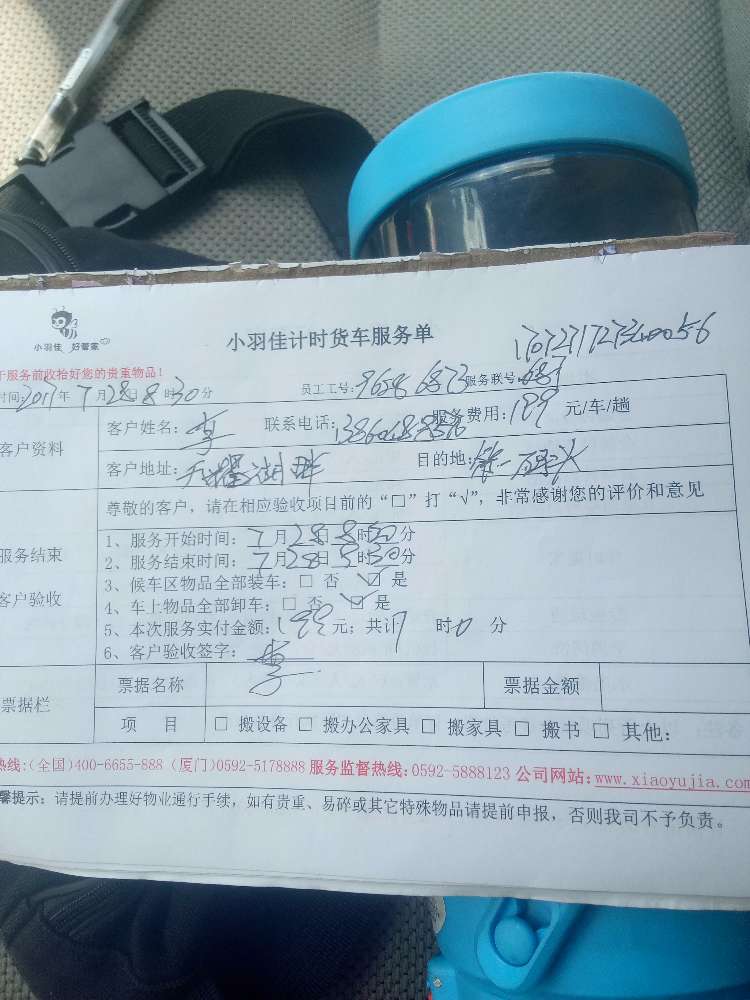 小羽佳 好管家
小羽佳计时货车服务单
于服务前收拾好您的贵重物品！
时间：2017年7月28日8时30分 员工工号： 服务联号：
客户资料
客户姓名：李 联系电话： 服务费用：199元/车/趟
客户地址： 目的地：
尊敬的客户，请在相应验收项目前的“□”打“√”，非常感谢您的评价和意见
服务结束
客户验收
1、服务开始时间：7月28日8时30分
2、服务结束时间：7月28日 时30分
3、候车区物品全部装车：□ 否 ☑ 是
4、车上物品全部卸车：□ 否 ☑ 是
5、本次服务实付金额：199元；共计 时0分
6、客户验收签字：李
票据栏
票据名称 票据金额
项 目 □ 搬设备 □ 搬办公家具 □ 搬家具 □ 搬书 □ 其他：
热线：(全国)400-6655-888 (厦门)0592-5178888 服务监督热线：0592-5888123 公司网站：www.xiaoyujia.com
馨提示：请提前办理好物业通行手续，如有贵重、易碎或其它特殊物品请提前申报，否则我司不予负责。